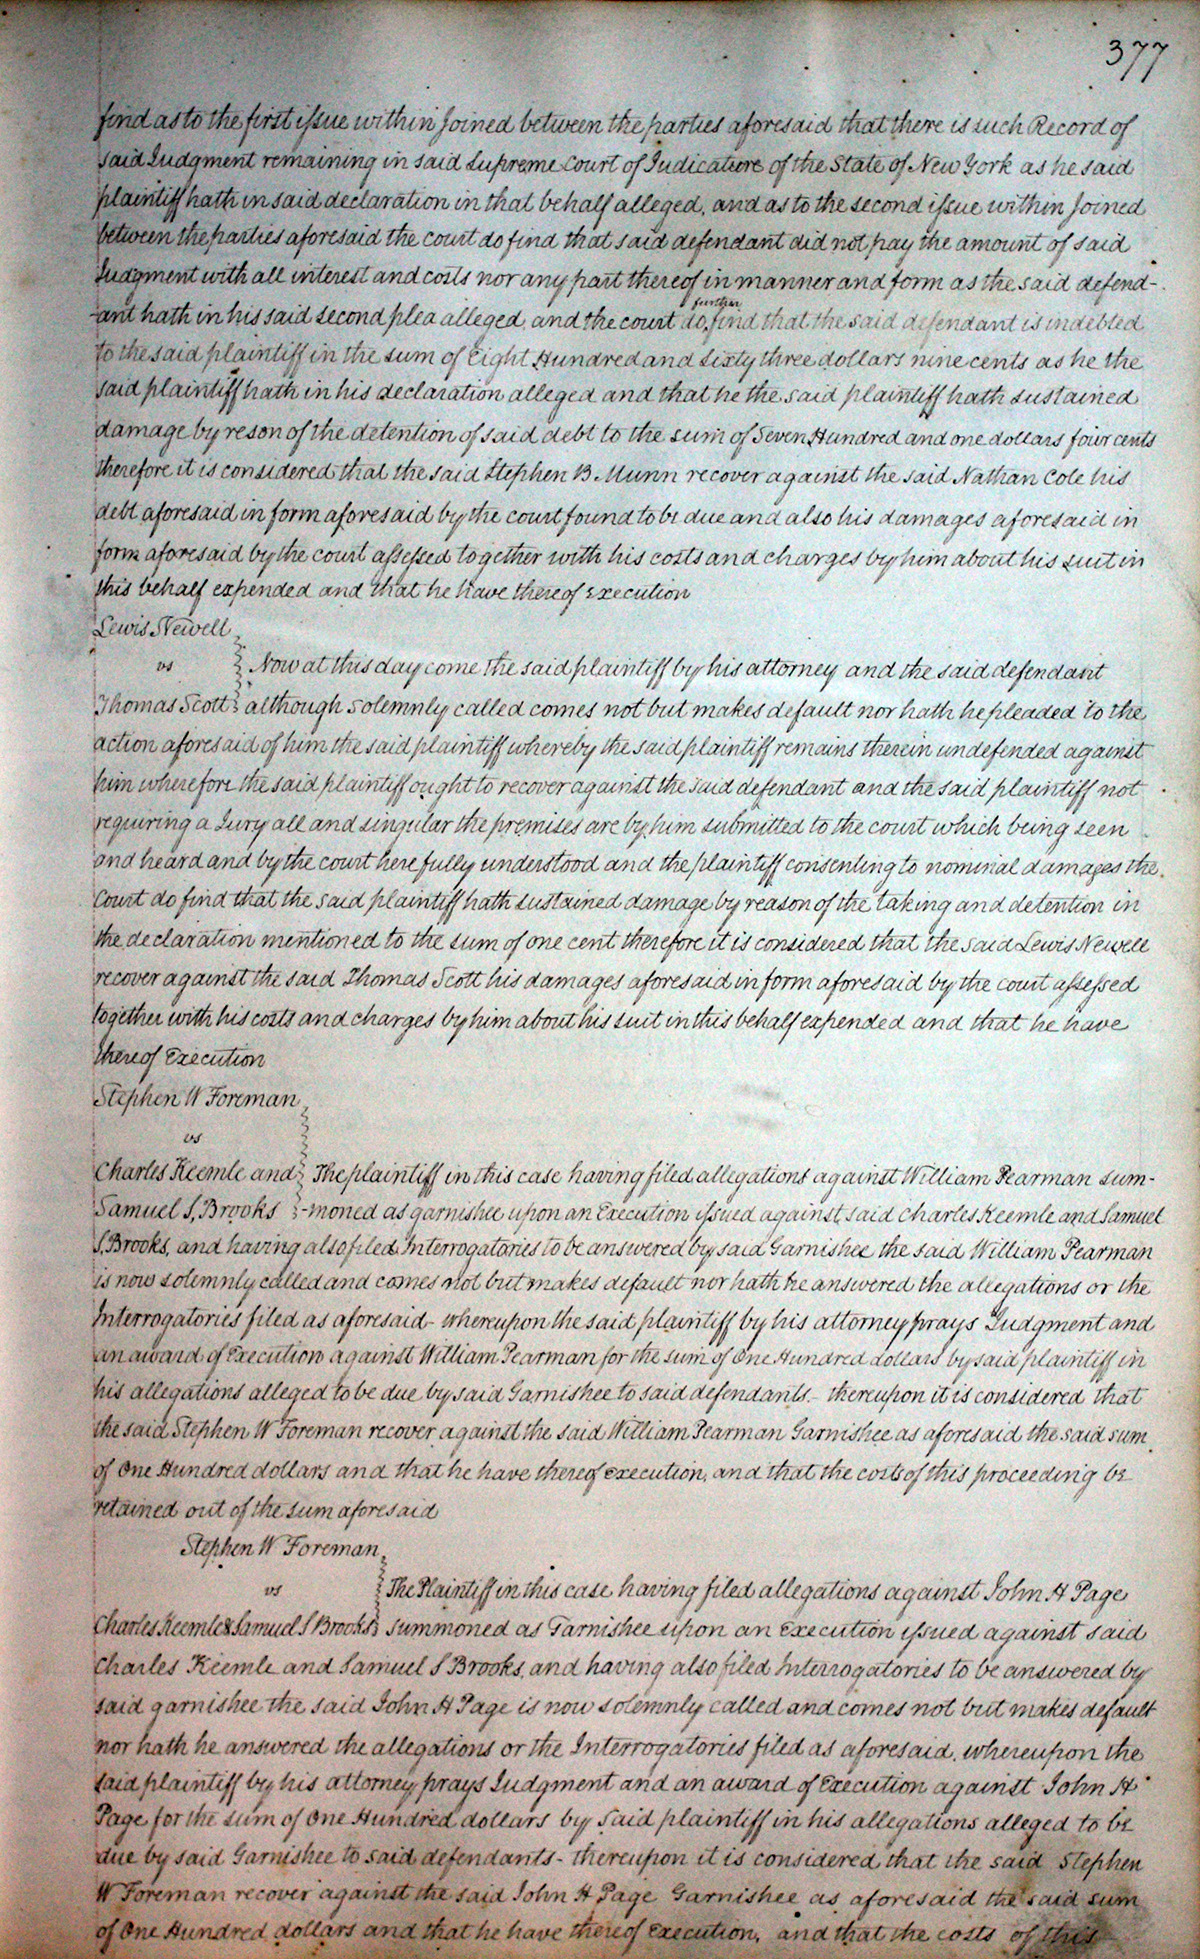 377
find as to the first issue within Joined between the parties aforesaid that there is such Record of
said Judgment remaining in said Supreme Court of Judicature of the State of New York as he said
plaintiff hath in said declaration in that behalf alleged, and as to the second issue within Joined
between the parties aforesaid the court do find that said defendant did not pay the amount of said
Judgment with all interest and costs nor any part thereof in manner and form as the said defend-
-ant hath in his said second plea alleged, and the court do, further find that the said defendant is indebted
to the said plaintiff in the sum of Eight Hundred and Sixty three dollars nine cents as he the
said plaintiff hath in his declaration alleged and that he the said plaintiff hath sustained
damage by reson of the detention of said debt to the sum of Seven Hundred and one dollars four cents
therefore it is considered that the said Stephen B. Munn recover against the said Nathan Cole his
debt aforesaid in form aforesaid by the court found to be due and also his damages aforesaid in
form aforesaid by the court assessed together with his costs and charges by him about his suit in
this behalf expended and that he have thereof Execution
Lewis Newell
vs Now at this day come the said plaintiff by his attorney and the said defendant
Thomas Scott although solemnly called comes not but makes default nor hath he pleaded to the
action aforesaid of him the said plaintiff whereby the said plaintiff remains therein undefended against
him wherefore the said plaintiff ought to recover against the said defendant and the said plaintiff not
requiring a Jury all and singular the premises are by him submitted to the court which being seen
and heard and by the court here fully understood and the plaintiff consenting to nominal damages the
Court do find that the said plaintiff hath sustained damage by reason of the taking and detention in
the declaration mentioned to the sum of one cent therefore it is considered that the said Lewis Newell
recover against the said Thomas Scott his damages aforesaid in form aforesaid by the court assessed
together with his costs and charges by him about his suit in this behalf expended and that he have
thereof Execution
Stephen W Foreman
vs
Charles Keemle and The plaintiff in this case having filed allegations against William Pearman sum-
Samuel S, Brooks -moned as garnishee upon an Execution issued against said Charles Keemle and Samuel
S, Brooks, and having also filed Interrogatories to be answered by said Garnishee the said William Pearman
is now solemnly called and comes not but makes default nor hath he answered the allegations or the
Interrogatories filed as aforesaid - whereupon the said plaintiff by his attorney prays Judgment and
an award of Execution against William Pearman for the sum of One Hundred dollars by said plaintiff in
his allegations alleged to be due by said Garnishee to said defendants - thereupon it is considered that
the said Stephen W Foreman recover against the said William Pearman Garnishee as aforesaid the said sum
of One Hundred dollars and that he have thereof execution, and that the costs of this proceeding be
retained out of the sum aforesaid
Stephen W Foreman
vs The Plaintiff in this case having filed allegations against John H Page
Charles Keemle & Samuel S Brooks summoned as Garnishee upon an Execution issued against said
Charles Keemle and Samuel S Brooks, and having also filed Interrogatories to be answered by
said garnishee the said John H Page is now solemnly called and comes not but makes default
nor hath he answered the allegations or the Interrogatories filed as aforesaid, whereupon the
said plaintiff by his attorney prays Judgment and an award of Execution against John H
Page for the sum of One Hundred dollars by said plaintiff in his allegations alleged to be
due by said Garnishee to said defendants - thereupon it is considered that the said Stephen
W Foreman recover against the said John H Page Garnishee as aforesaid the said sum
of One Hundred dollars and that he have thereof Execution, and that the costs of this